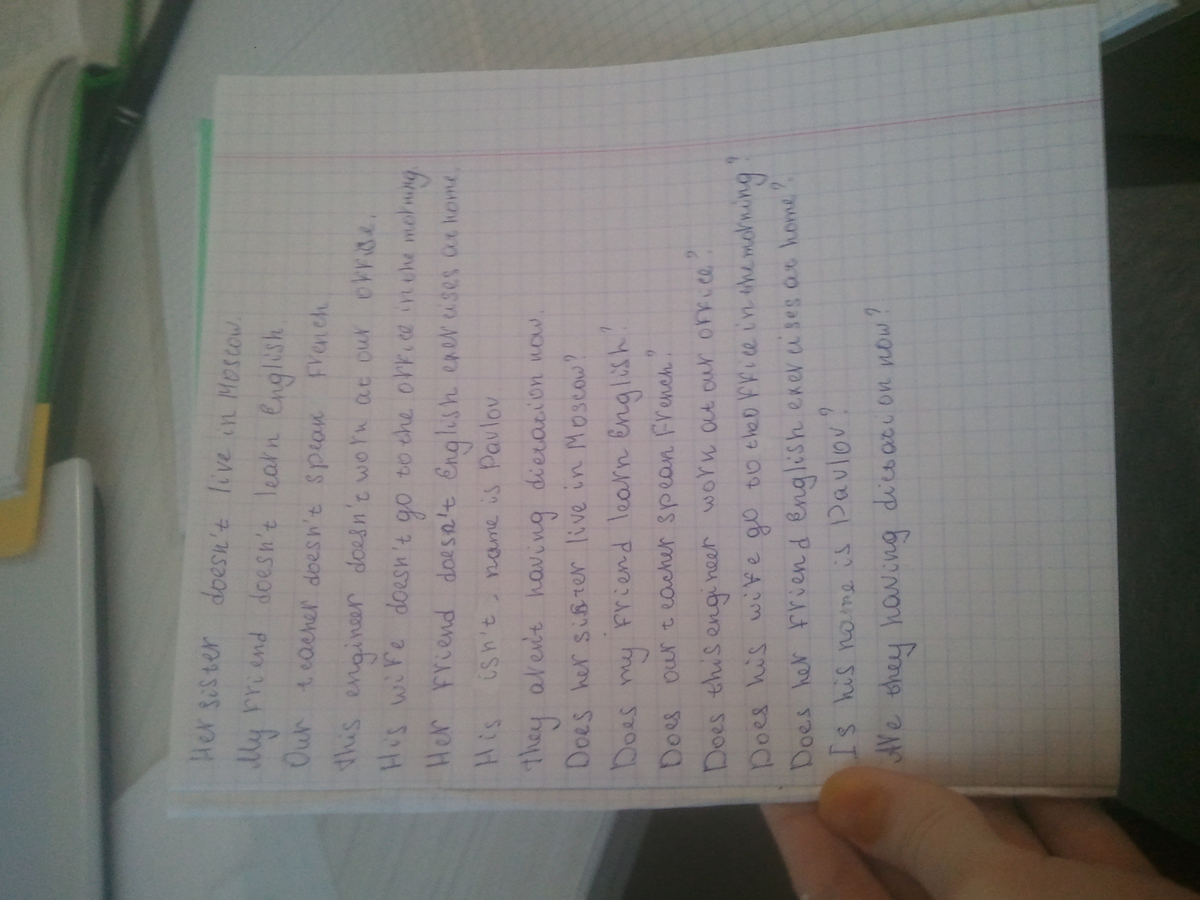 Her sister doesn't live in Moscow.
My friend doesn't learn English.
Our teacher doesn't spean French
This engineer doesn't worn at our office.
His wife doesn't go to the office in the morning.
Her friend doesn't English exercises at home.
His isn't, name is Pavlov
They aren't having dictation now.
Does her sister live in Moscow?
Does my friend learn English?
Does our teacher spean French?
Does this engineer worn at our office?
Does his wife go to the office in the morning?
Does her friend English exercises at home?
Is his name is Pavlov?
Are they having dictation now?